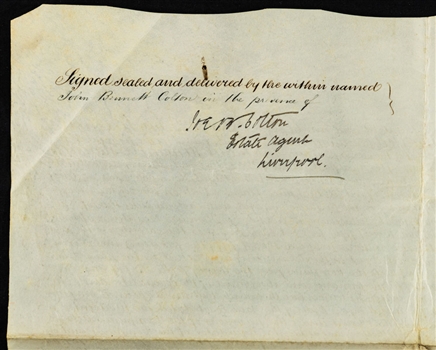 Signed, sealed, and delivered by the within named
John Bennett Colton in the presence of
W. Colton
Estate Agent
Liverpool.